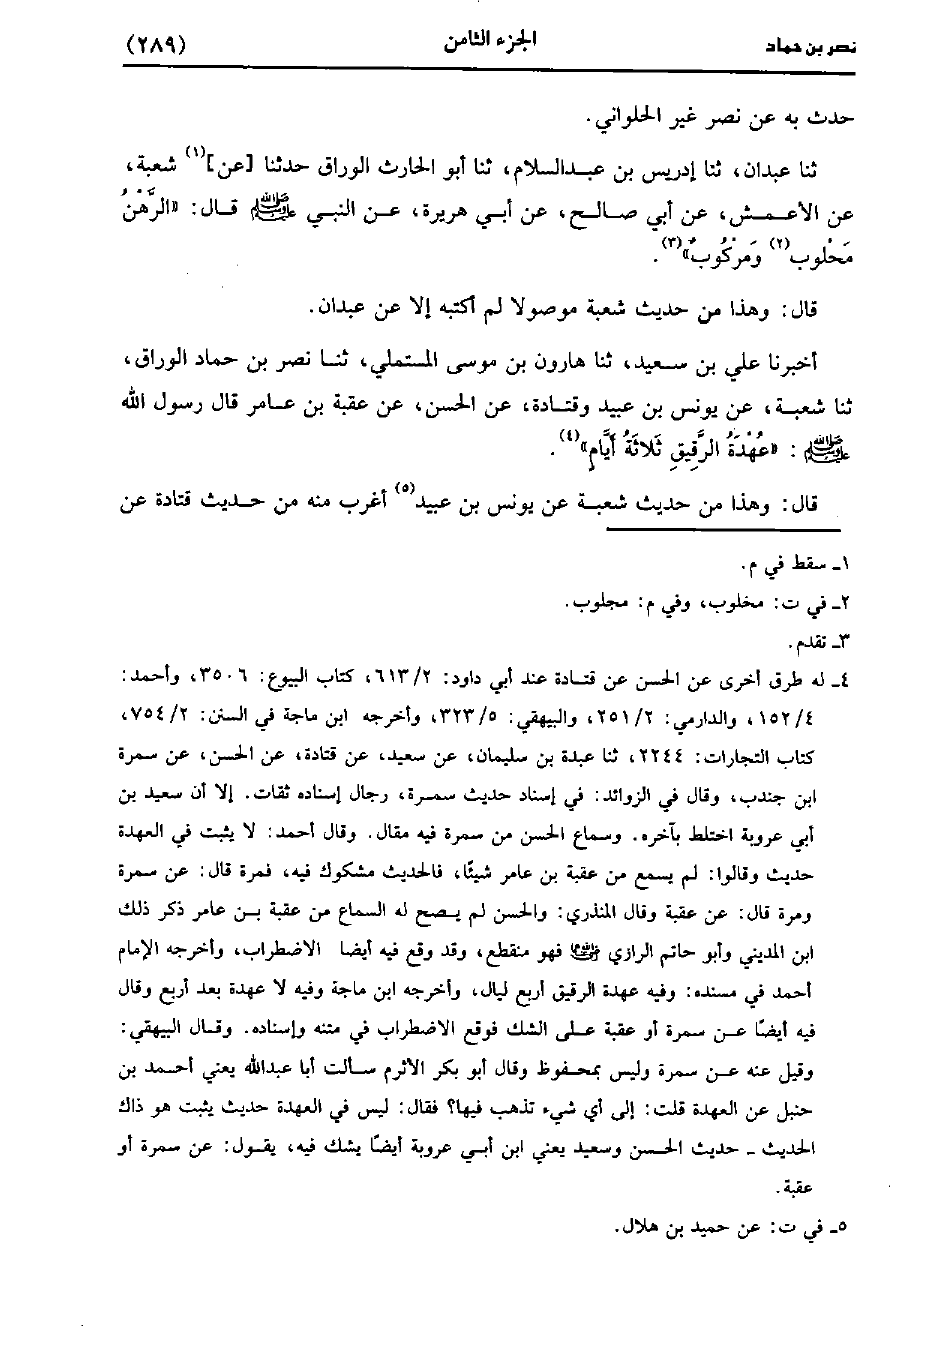 نصر بن حماد الجزء الثامن (٢٨٩)
حدث به عن نصر غير الحلواني.
ثنا عبدان، ثنا إدريس بن عبدالسلام، ثنا أبو الحارث الوراق حدثنا [عن](١) شعبة،
عن الأعمش، عن أبي صالح، عن أبي هريرة، عن النبي ﷺ قال: «الرَّهْنُ
مَحْلُوب(٢) وَمَرْكُوبٌ»(٣).
قال: وهذا من حديث شعبة موصولا لم أكتبه إلا عن عبدان.
أخبرنا علي بن سعيد، ثنا هارون بن موسى المستملي، ثنا نصر بن حماد الوراق،
ثنا شعبة، عن يونس بن عبيد وقتادة، عن الحسن، عن عقبة بن عامر قال رسول الله
ﷺ : «عُهْدَةُ الرَّقِيقِ ثَلاثَةُ أَيَّامٍ»(٤).
قال: وهذا من حديث شعبة عن يونس بن عبيد(٥) أغرب منه من حديث قتادة عن
١ـ سقط في م.
٢ـ في ت: مخلوب، وفي م: مجلوب.
٣ـ تقدم.
٤ـ له طرق أخرى عن الحسن عن قتادة عند أبي داود: ٦١٣/٢، كتاب البيوع: ٣٥٠٦، وأحمد:
١٥٢/٤، والدارمي: ٢٥١/٢، والبيهقي: ٣٢٣/٥، وأخرجه ابن ماجة في السنن: ٧٥٤/٢،
كتاب التجارات: ٢٢٤٤، ثنا عبدة بن سليمان، عن سعيد، عن قتادة، عن الحسن، عن سمرة
ابن جندب، وقال في الزوائد: في إسناد حديث سمرة، رجال إسناده ثقات. إلا أن سعيد بن
أبي عروبة اختلط بآخره. وسماع الحسن من سمرة فيه مقال. وقال أحمد: لا يثبت في العهدة
حديث وقالوا: لم يسمع من عقبة بن عامر شيئًا، فالحديث مشكوك فيه، فمرة قال: عن سمرة
ومرة قال: عن عقبة وقال المنذري: والحسن لم يصح له السماع من عقبة بن عامر ذكر ذلك
ابن المديني وأبو حاتم الرازي فهو منقطع، وقد وقع فيه أيضا الاضطراب، وأخرجه الإمام
أحمد في مسنده: وفيه عهدة الرقيق أربع ليال، وأخرجه ابن ماجة وفيه لا عهدة بعد أربع وقال
فيه أيضًا عن سمرة أو عقبة على الشك فوقع الاضطراب في متنه وإسناده. وقال البيهقي:
وقيل عنه عن سمرة وليس بمحفوظ وقال أبو بكر الأثرم سألت أبا عبدالله يعني أحمد بن
حنبل عن العهدة قلت: إلى أي شيء تذهب فيها؟ فقال: ليس في العهدة حديث يثبت هو ذاك
الحديث ـ حديث الحسن وسعيد يعني ابن أبي عروبة أيضًا يشك فيه، يقول: عن سمرة أو
عقبة.
٥ـ في ت: عن حميد بن هلال.